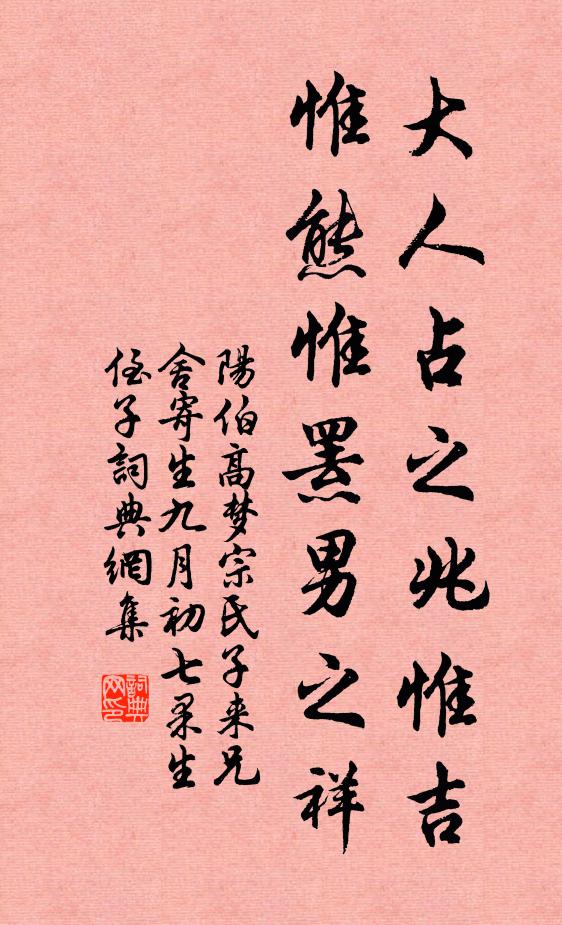 大人占之兆惟吉
惟熊惟羆男之祥
陽伯高梦宗氏子来兄
舍寄生九月初七果生
侄子詞典網集
詞典
网印